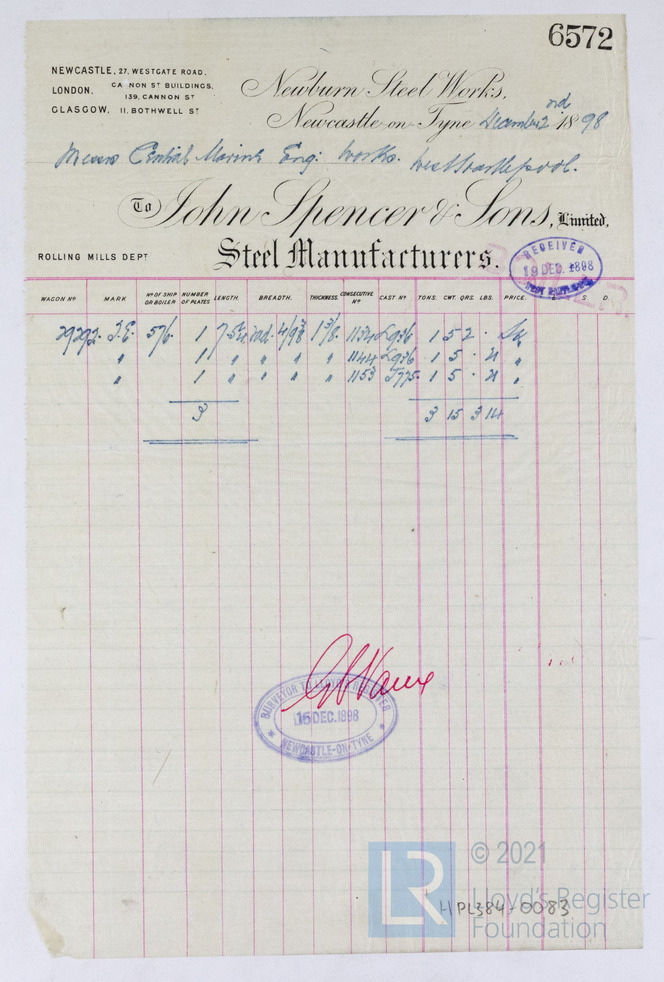 6572
NEWCASTLE, 27, WESTGATE ROAD.
LONDON, CANNON ST BUILDINGS,
139, CANNON ST
GLASGOW, 11, BOTHWELL ST
Newburn Steel Works,
Newcastle-on-Tyne December 2nd 1898
Messrs Central Marine Eng: Works. West Hartlepool.
To John Spencer & Sons, Limited,
ROLLING MILLS DEPT Steel Manufacturers.
RECEIVED
19 DEC. 1898
WEST HARTLEPOOL
WAGON No MARK No OF SHIP OR BOILER NUMBER OF PLATES LENGTH. BREADTH. THICKNESS. CONSECUTIVE No CAST No TONS. CWT. QRS. LBS. PRICE. £ S. D.
29292 576 1 4/98 1 3/8 1134 L936 1 5 2 .
" 1 " " " 1144 L936 1 5 . 21 "
" 1 " " " 1153 1 5 . 21 "
3 3 15 3 14
SURVEYOR TO LLOYD'S REGISTER
15 DEC. 1898
NEWCASTLE-ON-TYNE
LR
© 2021
Lloyd's Register
Foundation
HPL384-0083